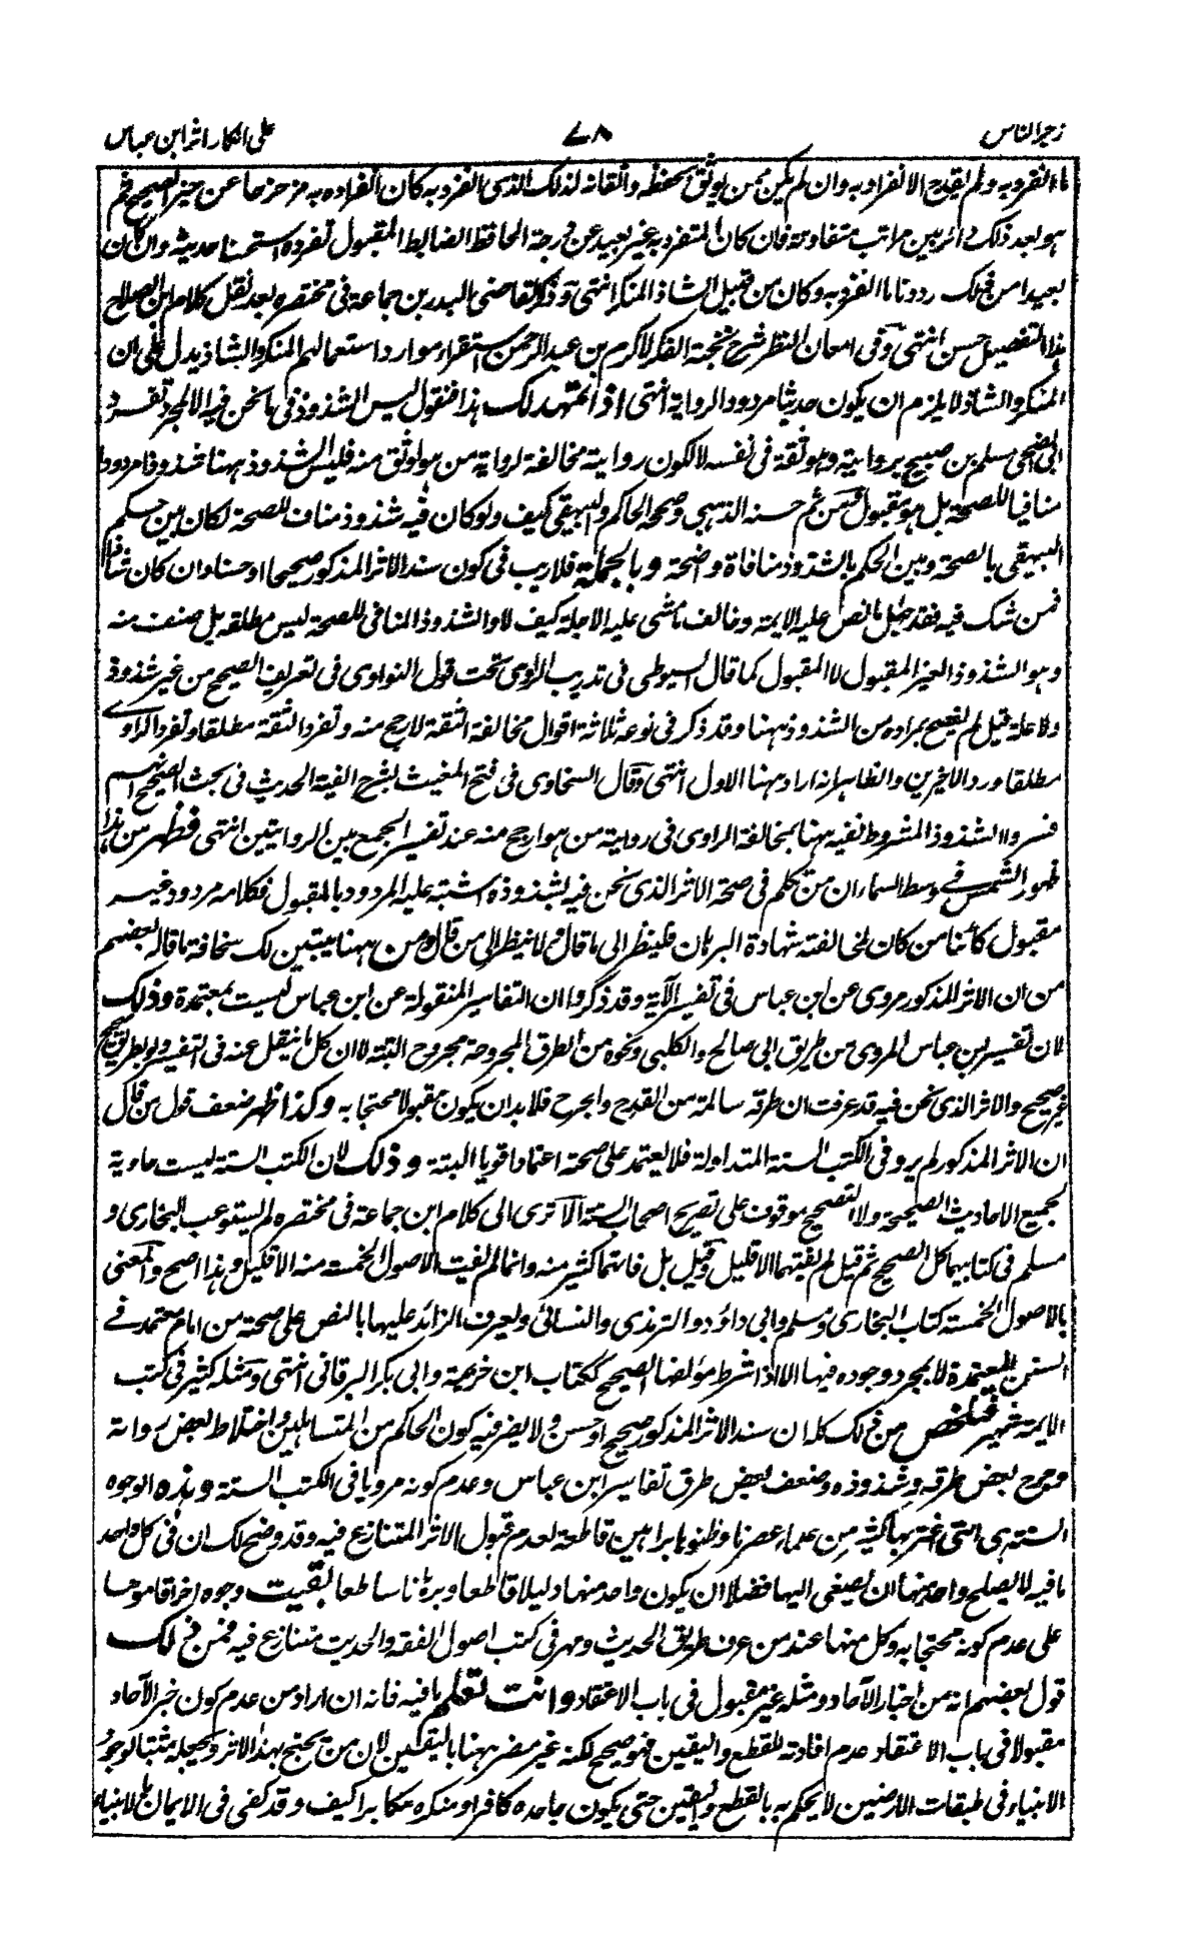 زجر الناس ٧٨ على انكار اثر ابن عباس
ما انفرد به ولم يقدح الانفراد به وان لم يكن ممن يوثق بحفظه واتقانه لذلك الذى انفرد به كان انفراده به مزحزحا عن حيز الصحيح ثم
هو بعد ذلك دائر بين مراتب متفاوتة فان كان المتفرد به غير بعيد عن درجة الحافظ الضابط المقبول تفرده استحسنا حديثه وان كان
بعيدا من ذلك رددنا ما انفرد به وكان من قبيل الشاذ المنكر انتهى وذكر القاضى البدر بن جماعة فى مختصره بعد نقل كلام ابن الصلاح
هذا التفصيل حسن انتهى وفى امعان النظر شرح نخبة الفكر لاكرم بن عبد الرحمن استقراء موارد استعمالهم المنكر والشاذ يدل على ان
المنكر والشاذ لا يلزم ان يكون حديثا مردود الرواية انتهى اذا تمهد لك هذا فنقول ليس الشذوذ فى ما نحن فيه الا لمجرد تفرد
ابى الضحى مسلم بن صبيح بروايته وهو ثقة فى نفسه لا لكون روايته مخالفة لرواية من هو اوثق منه فليس الشذوذ ههنا شذوذا مردودا
منافيا للصحة بل هو مقبول ومن ثم حسنه الذهبى وصححه الحاكم والبيهقى كيف ولو كان فيه شذوذ مناف للصحة لكان بين حكم
البيهقى بالصحة وبين الحكم بالشذوذ منافاة واضحة وبالجملة فلا ريب فى كون سند الاثر المذكور صحيحا او حسنا وان كان شاذا
فمن شك فيه فقد جهل ما نص عليه الايمة وخالف ما مشى عليه الاجلة كيف لا والشذوذ المنافى للصحة ليس مطلقه بل صنف منه
وهو الشذوذ الغير المقبول لا المقبول كما قال السيوطى فى تدريب الراوى تحت قول النواوى فى تعريف الصحيح من غير شذوذ
ولا علة قيل لم يفصح بمراده من الشذوذ ههنا وقد ذكر فى نوعه ثلاثة اقوال مخالفة الثقة لارجح منه وتفرد الثقة مطلقا وتفرد الراوے
مطلقا ورد الاخيرين والظاهر انه اراد ههنا الاول انتهى وقال السخاوى فى فتح المغيث بشرح الفية الحديث فى بحث الصحيح انهم
فسروا الشذوذ المشروط نفيه ههنا بمخالفة الراوى فى روايته من هو ارجح منه عند تعسر الجمع بين الروايتين انتهى فظهر من هذا
ظهور الشمس فے وسط السماء ان من تكلم فى صحة الاثر الذى نحن فيه بشذوذه اشتبه عليه المردود بالمقبول فكلامه مردود غير
مقبول كائنا من كان لمخالفته شهادة البرهان فلينظر الى ما قال ولا ينظر الى من قال ومن ههنا يتبين لك سخافة ما قاله بعضهم
من ان الاثر المذكور مروى عن ابن عباس فى تفسير الآية وقد ذكروا ان التفاسير المنقولة عن ابن عباس ليست بمعتمدة وذلك
لان تفسير ابن عباس المروى من طريق ابى صالح والكلبى ونحوه من الطرق المجروحة مجروح البتة لا ان كل ما ينقل عنه فى التفسير ولو بطريق صحيح
غير صحيح والاثر الذى نحن فيه قد عرفت ان طرقه سالمة من القدح والجرح فلا بد ان يكون مقبولا محتجا به وكذا ظهر ضعف قول من قال
ان الاثر المذكور لم يرو فى الكتب الستة المتداولة فلا يعتمد على صحته اعتمادا قويا البتة وذلك لان الكتب الستة ليست حاوية
لجميع الاحاديث الصحيحة ولا التصحيح موقوف على تصريح اصحاب الستة الا ترى الى كلام ابن جماعة فى مختصره لم يستوعب البخارى و
مسلم فى كتابيهما كل الصحيح ثم قيل لم يفتهما الا قليل وقيل بل فاتهما كثير منه وانما لم يفت الاصول الخمسة منه الا قليل وهذا اصح والمعنى
بالاصول الخمسة كتاب البخارى ومسلم وابى داؤد والترمذى والنسائى ويعرف الزائد عليها بالنص على صحته من امام معتمد فے
السنن المعتمدة لا بمجرد وجوده فيها الا اذا شرط مؤلفها الصحيح ككتاب ابن خزيمة وابى بكر البرقانى انتهى ومثله كثير فى كتب
الايمة شهير فتلخص من ذلك كله ان سند الاثر المذكور صحيح او حسن ولا يضر فيه كون الحاكم من المتساهلين واختلاط بعض رواته
وجرح بعض طرقه وشذوذه وضعف بعض طرق تفاسير ابن عباس وعدم كونه مرويا فى الكتب الستة وهذه الوجوه
الستة هى التى اغتر بها كثير من علماء عصرنا وظنوها براهين قاطعة لعدم قبول الاثر المتنازع فيه وقد وضح لك ان فى كل واحد
ما فيه لا يصلح واحد منها ان يصغى اليها فضلا ان يكون واحد منها دليلا قاطعا وبرهانا ساطعا بقيت وجوه اخر اقاموها
على عدم كونه محتجا به وكل منها عند من عرف طريق الحديث ومهر فى كتب اصول الفقه والحديث متنازع فيه فمن ذلك
قول بعضهم انه من اخبار الآحاد ومثله غير مقبول فى باب الاعتقاد وانت تعلم ما فيه فانه ان اراد من عدم كون خبر الآحاد
مقبولا فى باب الاعتقاد عدم افادته للقطع واليقين فهو صحيح لكنه غير مضر ههنا باليقين لان من يحتج بهذا الاثر ويجعله مثبتا لوجود
الانبياء فى طبقات الارضين لا يحكم به بالقطع واليقين حتى يكون جاحده كافرا ومنكره مكابرا كيف وقد كفى فى الايمان بالانبياء